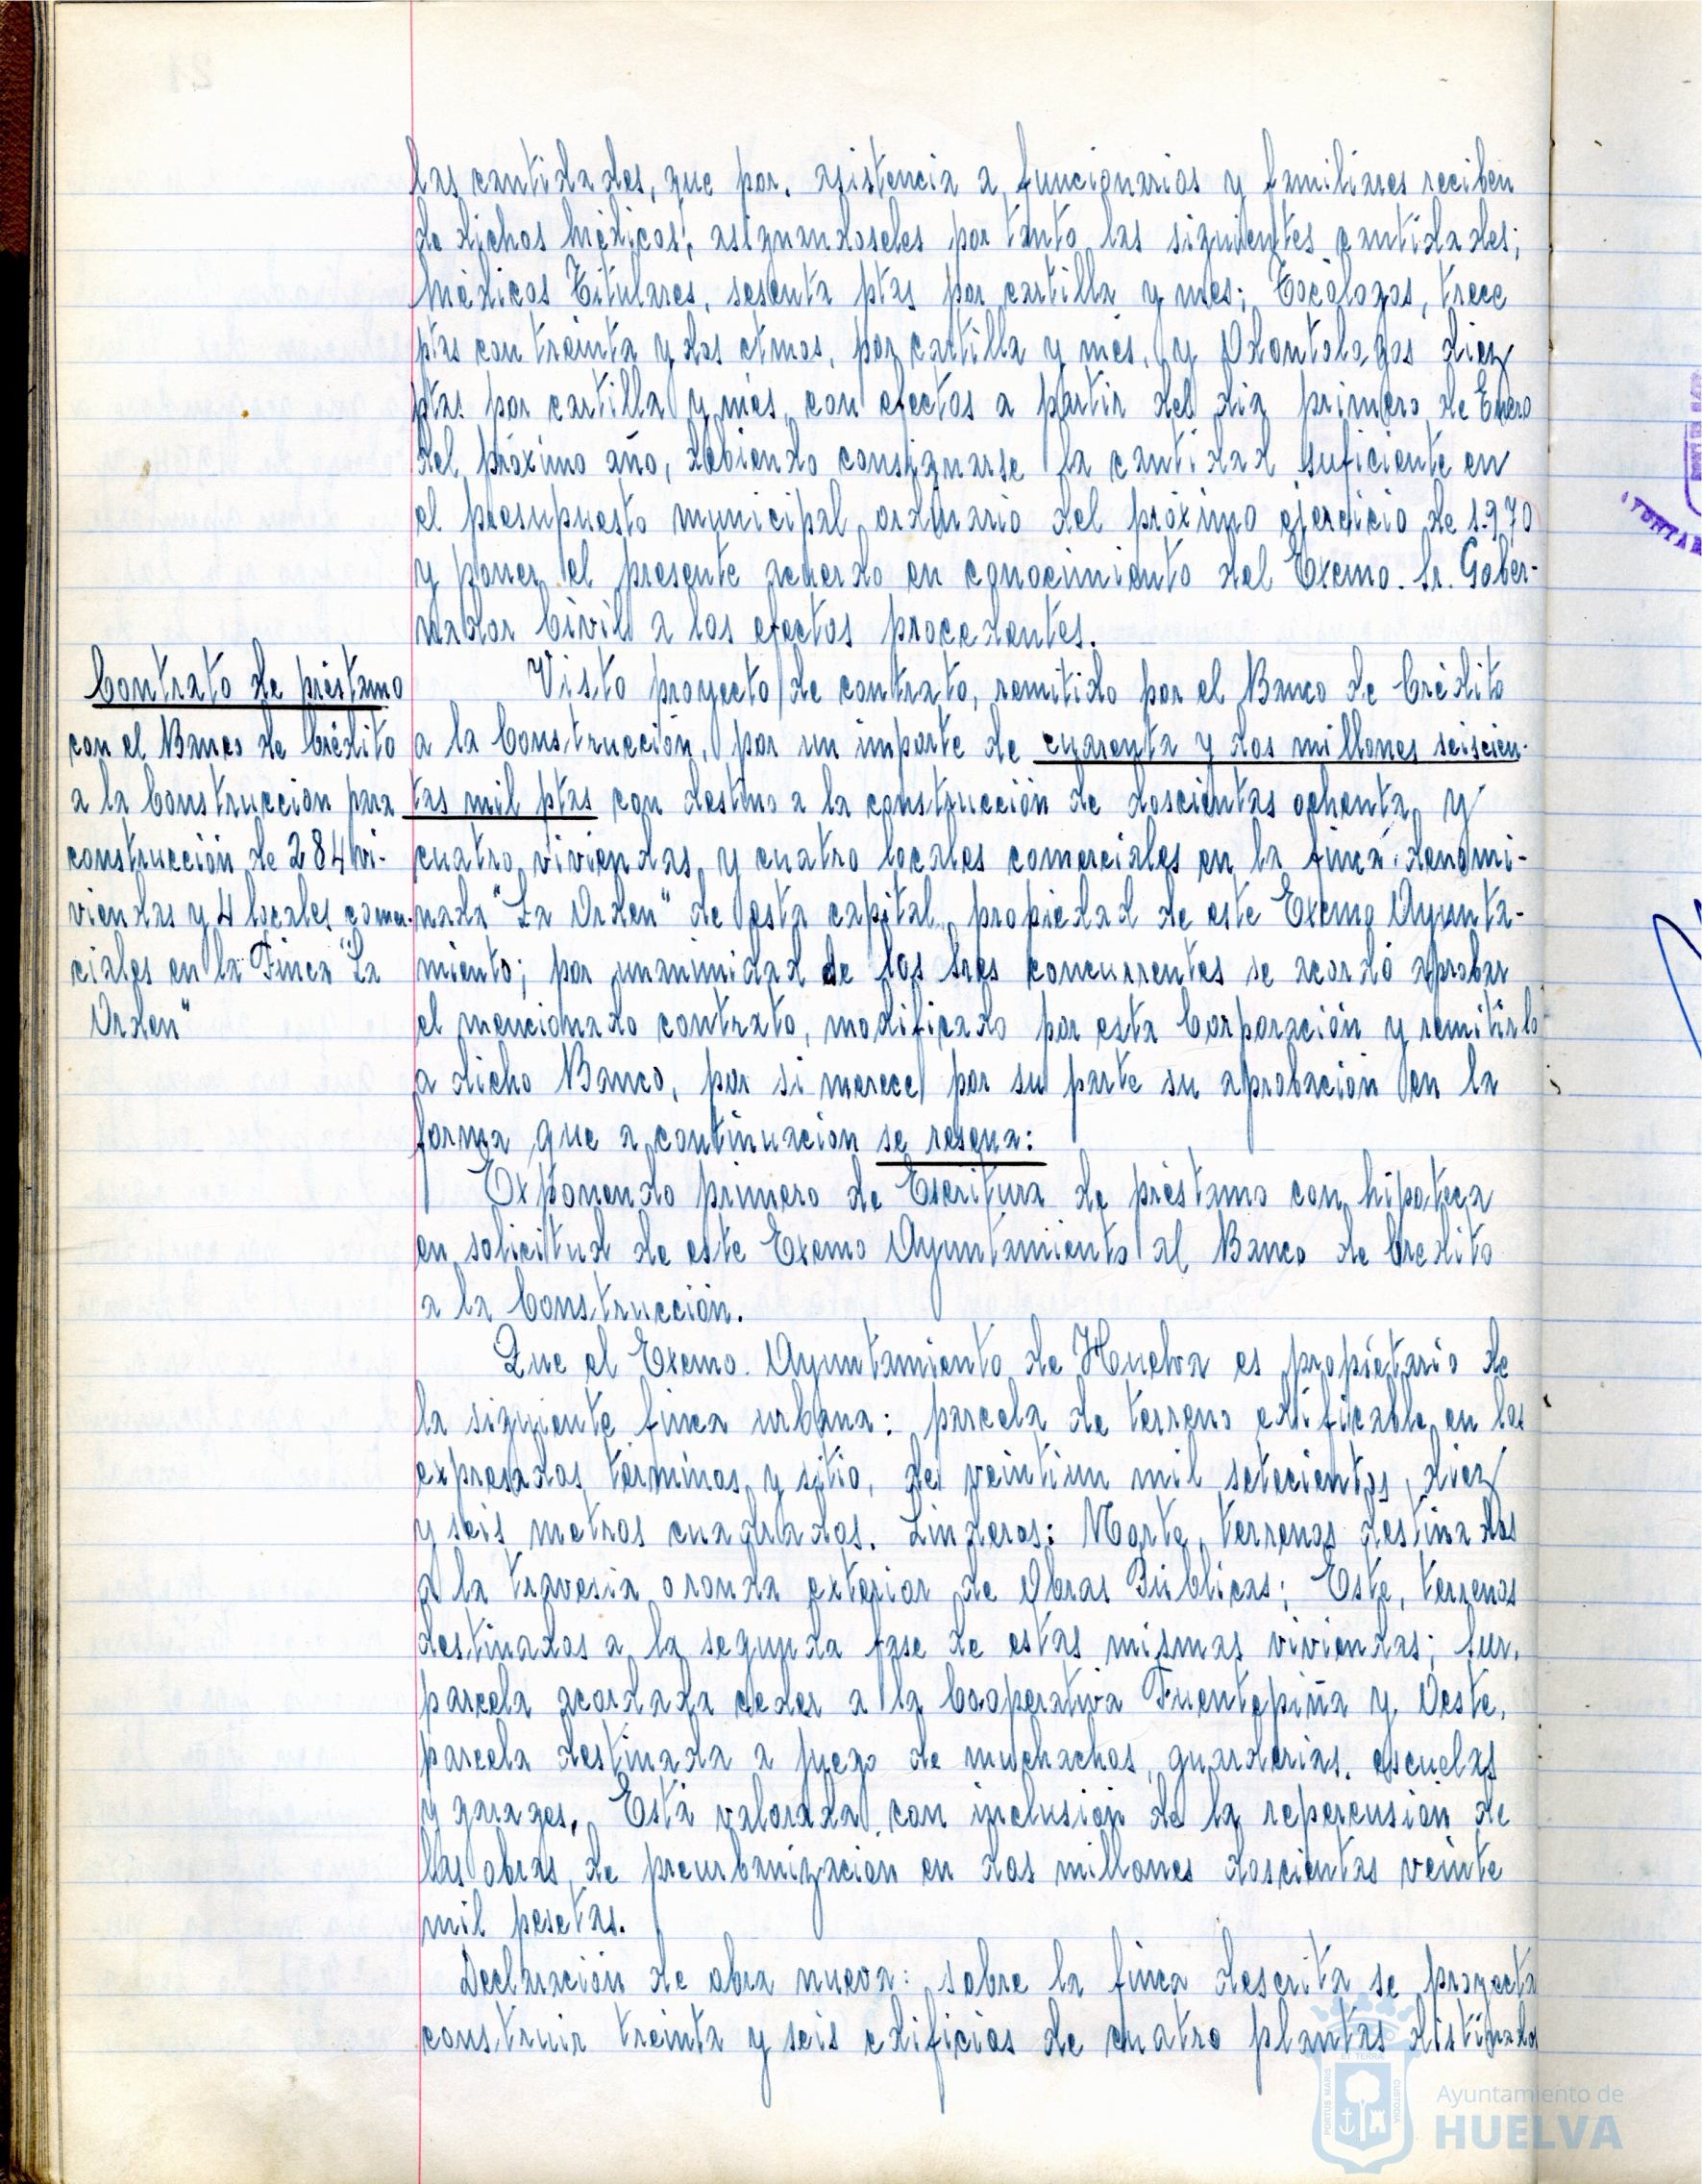 las cantidades, que por. asistencia a funcionarios y familiares reciben
de dichos Médicos; asignandoseles por tanto las siguientes cantidades;
Médicos Titulares, sesenta ptas por cartilla y mes; Tocólogos, trece
ptas con treinta y dos ctmos, por cartilla y més, y Odontologos diez
ptas. por cartilla y més, con efectos a partir del dia primero de Enero
del próximo año, debiendo consignarse la cantidad suficiente en
el presupuesto municipal ordinario del próximo ejercicio de 1.970
y poner el presente acuerdo en conocimiento del Excmo. Sr. Gober-
nador Civil a los efectos procedentes.
Contrato de préstamo
con el Banco de Crédito
a la Construccion para
construcción de 284 vi-
viendas y 4 locales comer-
ciales en la Finca "La
Orden"
Visto proyecto de contrato, remitido por el Banco de Crédito
a la Construcción, por un importe de cuarenta y dos millones seiscien-
tas mil ptas con destino a la construcción de doscientas ochenta y
cuatro viviendas y cuatro locales comerciales en la finca denomi-
nada "La Orden" de esta capital, propiedad de este Excmo Ayunta-
miento; por unanimidad de los Sres concurrentes se acordó aprobar
el mencionado contrato, modificado por esta Corporación y remitirlo
a dicho Banco, por si merece por su parte su aprobación en la
forma que a continuación se resena:
Exponendo primero de Escritura de préstamo con hipoteca
en solicitud de este Excmo Ayuntamiento al Banco de Credito
a la Construcción.
Que el Excmo. Ayuntamiento de Huelva es propietario de
la siguiente finca urbana: parcela de terreno edificable en los
expresados términos y sitio, de veintiun mil setecientos diez
y seis metros cuadrados. Linderos: Norte, terrenos destinados
a la travesia o ronda exterior de Obras Públicas; Este, terrenos
destinados a la segunda fase de estas mismas viviendas; Sur,
parcela acordada ceder a la Cooperativa Fuentepiña y Oeste,
parcela destinada a juego de muchachos, guarderias, escuelas
y garages. Está valorada con inclusión de la repercusión de
las obras de preurbanización en dos millones doscientas veinte
mil pesetas.
Declaración de obra nueva: sobre la finca descrita se proyecta
construir treinta y seis edificios de cuatro plantas distinados
PORTUS MARIS ET TERRAE CUSTODIA
Ayuntamiento de
HUELVA